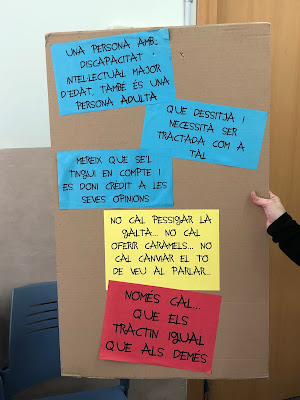 UNA PERSONA AMB
DISCAPACITAT
INTEL·LECTUAL MAJOR
D'EDAT, TAMBÉ ÉS UNA
PERSONA ADULTA
QUE DESSITJA I
NECESSITA SER
TRACTADA COM A
TAL
MEREIX QUE SE'L
TINGUI EN COMPTE I
ES DONI CRÈDIT A LES
SEVES OPINIONS
NO CAL PESSIGAR LA
GALTA... NO CAL
OFERIR CARAMELS... NO
CAL CANVIAR EL TO
DE VEU AL PARLAR...
NOMÉS CAL...
QUE ELS
TRACTIN IGUAL
QUE ALS DEMÉS